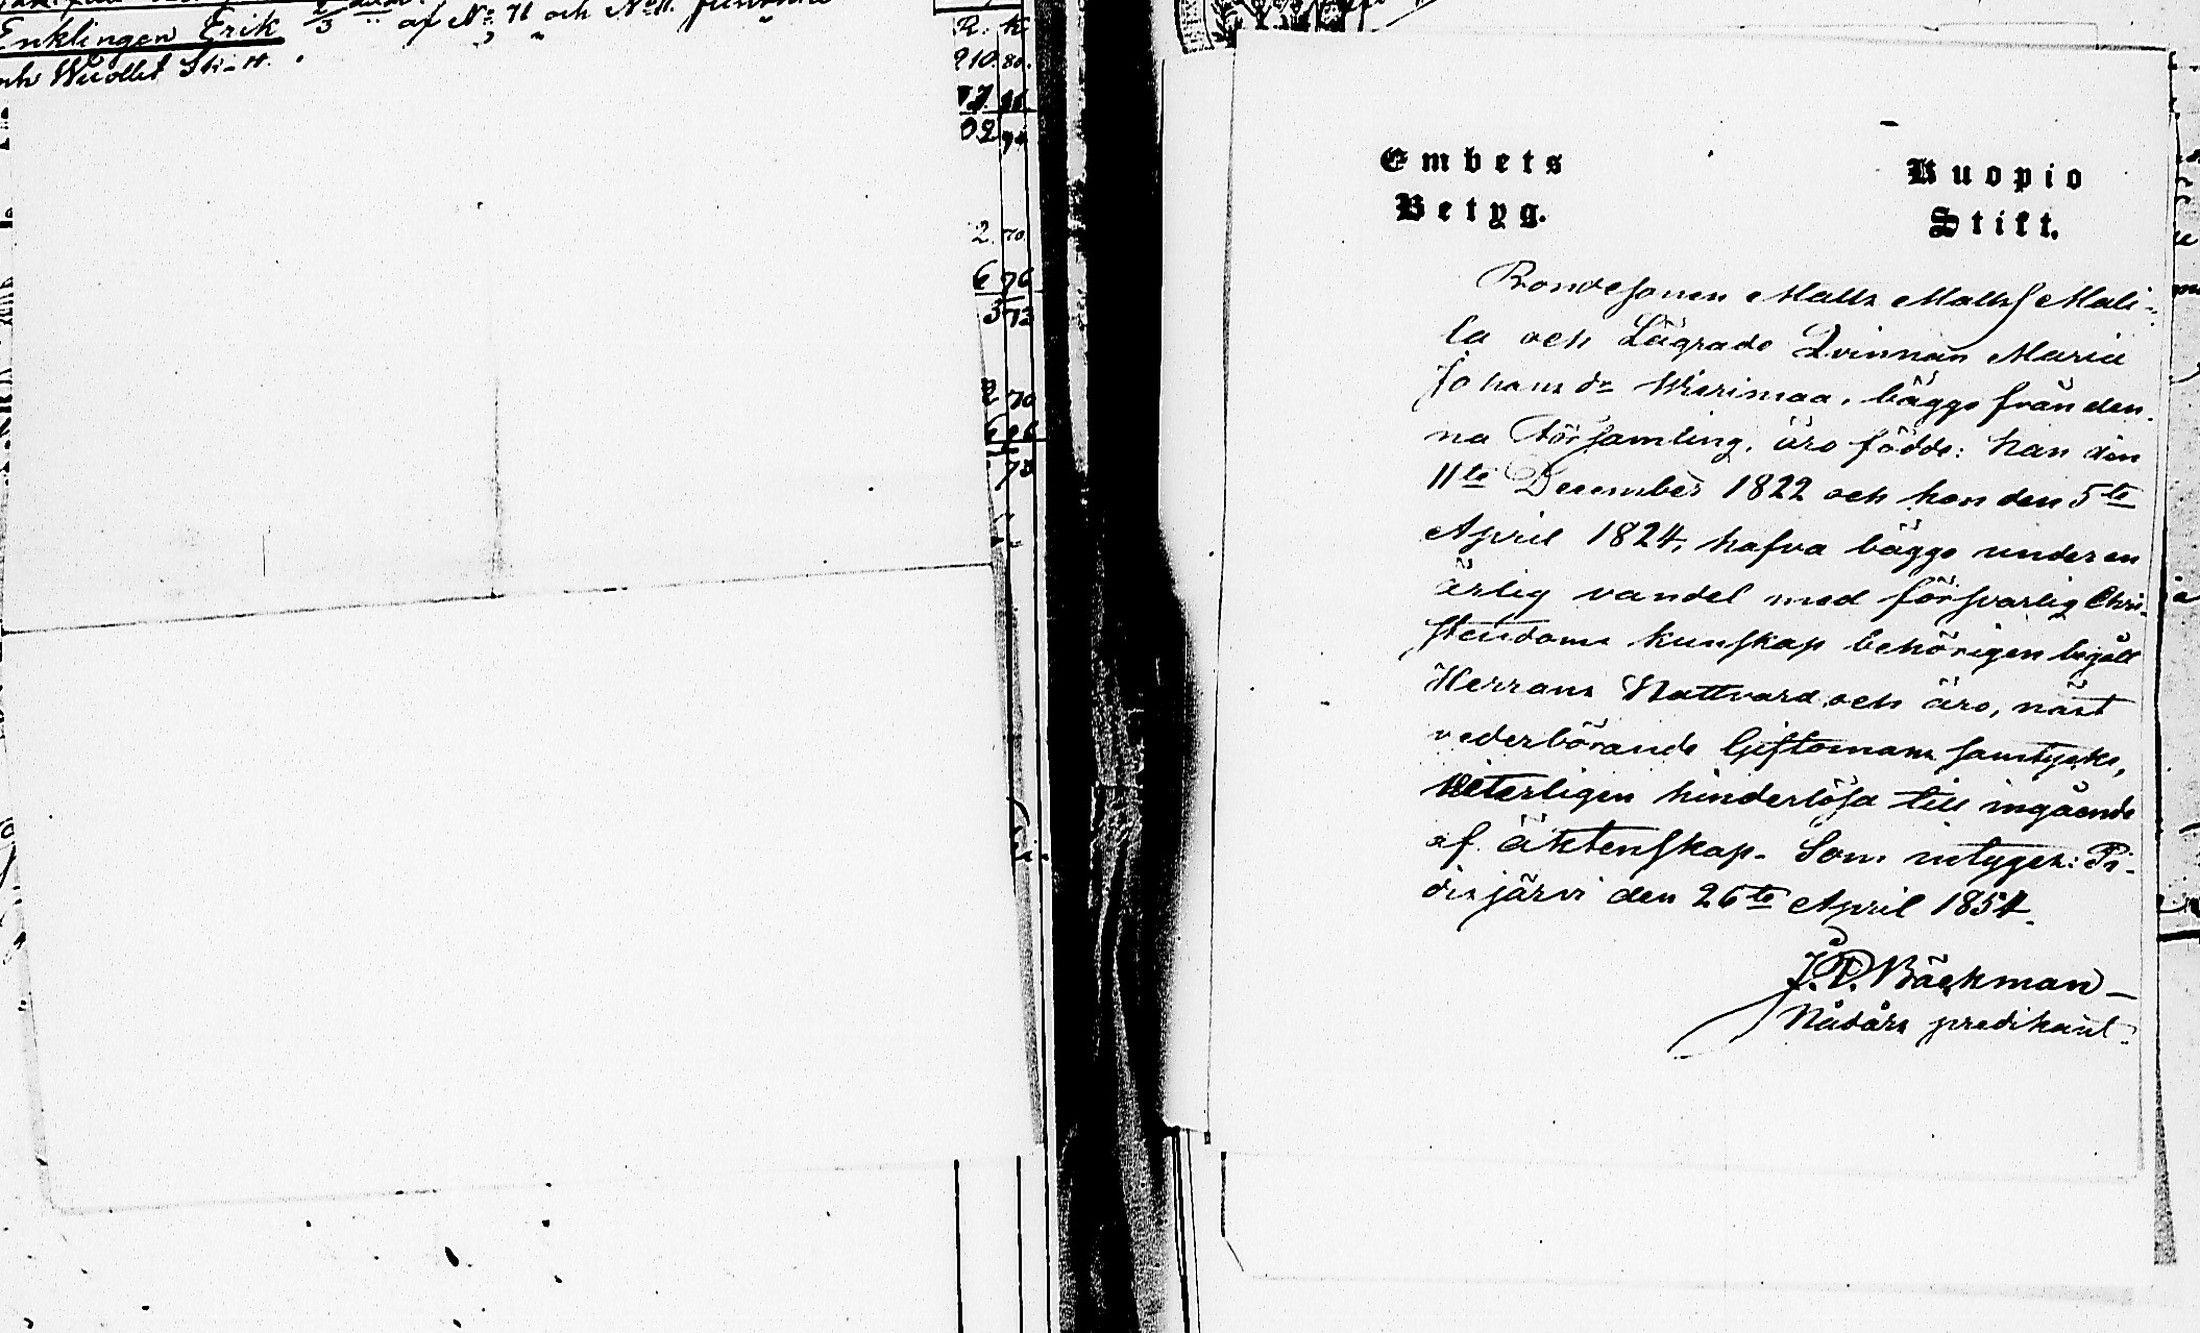 Enklingen Erik 2/3 " af No 71 och
R. K
210. 80.
02 74
2. 70.
6 76
3 73
2 70
Embets
Betyg.
Kuopio
Stift.
Bondesonen Matts Matts Mali-
la och Lägrade Qvinnan Maria
Johansdr Wirimaa, bägge från den-
na Församling, äro födde: han den
11te December 1822 och hon den 5te
April 1824, hafva bägge under en
ärlig vandel med försvarlig Chri-
stendoms kunskap behörigen begått
Herrans Nattvard och äro, näst
vederbörande Giftomans samtycke,
Veterligen hinderlösa till ingående
af äktenskap. Som intygar: Pi-
disjärvi den 26te April 1854.
J. P. Bäckman
Nådårs predikant.